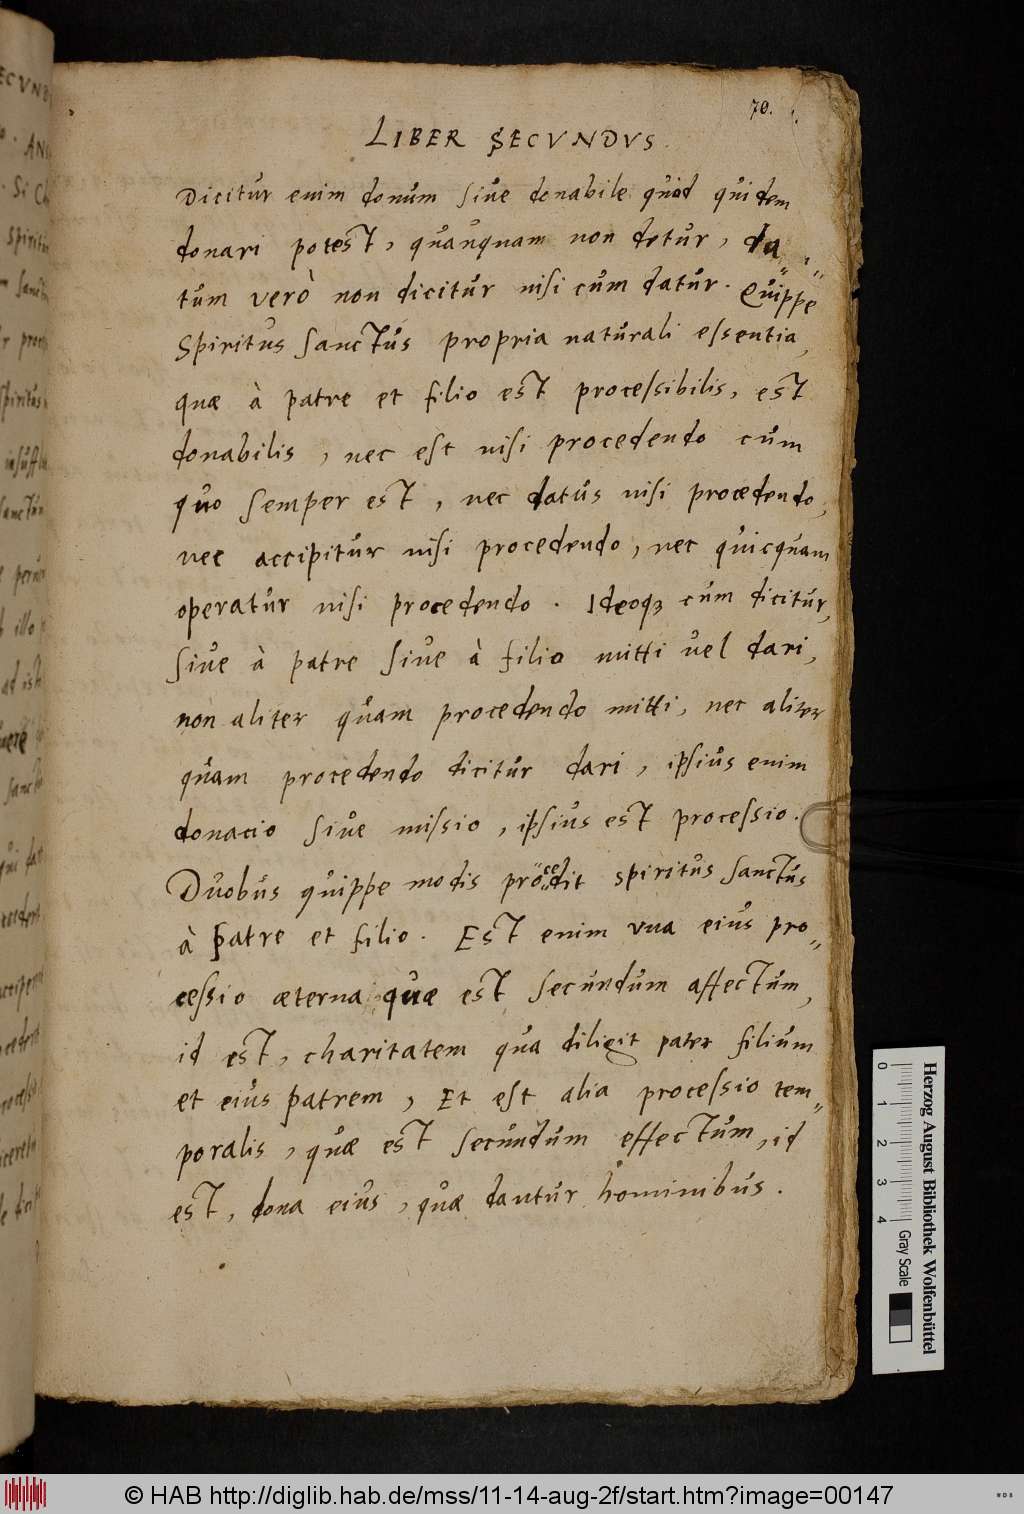 70.
LIBER SECVNDVS.
Dicitur enim donum siue donabile quod quidem
donari potest, quanquam non detur, da„
tum verò non dicitur nisi cum datur. Quippe
Spiritus sanctus propria naturali essentia,
quæ à patre et filio est processibilis, est
donabilis, nec est nisi procedendo cum
quo semper est, nec datus nisi procedendo,
nec accipitur nisi procedendo, nec quicquam
operatur nisi procedendo. Ideoqꝫ cum dicitur,
siue à patre siue à filio mitti vel dari,
non aliter quam procedendo mitti, nec aliter
quam procedendo dicitur dari, ipsius enim
donacio siue missio, ipsius est processio.
Duobus quippe modis procedit spiritus sanctus
à patre et filio. Est enim vna eius pro„
cessio æterna quæ est secundum affectum,
id est, charitatem qua diligit pater filium
et eius patrem, Et est alia processio tem„
poralis, quæ est secundum effectum, id
est, dona eius, quæ dantur hominibus.
Herzog August Bibliothek Wolfenbüttel
0 1 2 3 4
Gray Scale
© HAB http://diglib.hab.de/mss/11-14-aug-2f/start.htm?image=00147